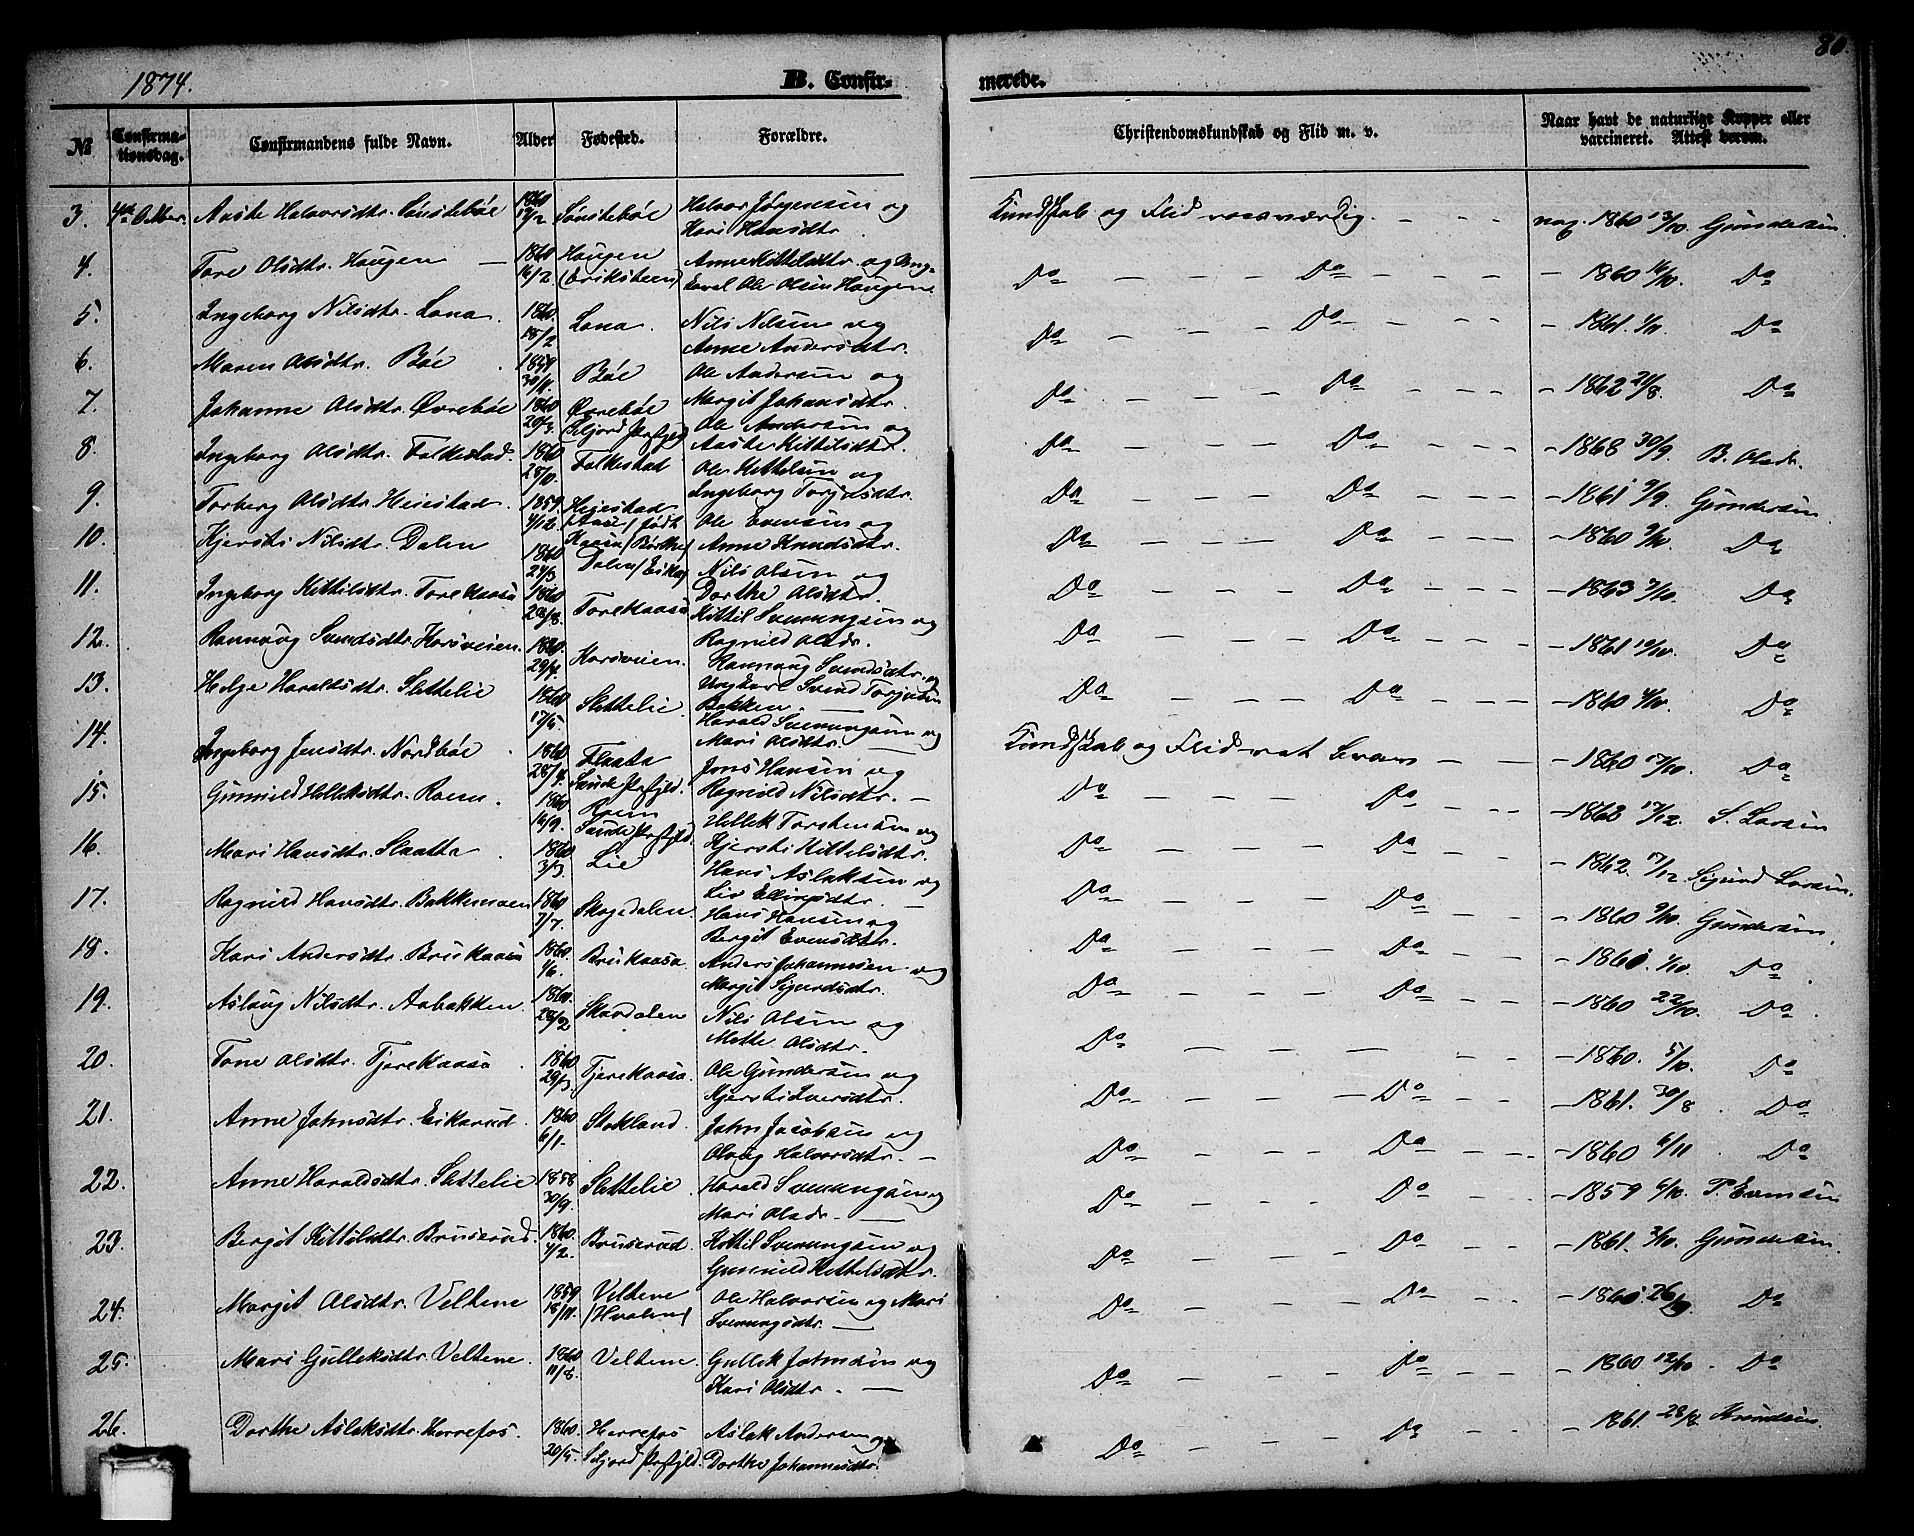 1874. B. Confir- merede. 80.
№ Confirmationsdag. Confirmandens fulde Navn. Alder Fødested. Forældre. Christendomskundskab og Flid m. v. Naar havt de naturlige Kopper eller varcineret. Attest derom.
3. 4de Octber. Aaste Halvorsdtr. Sönstebøe 1860 17/2 Sönstebøe Halvor Jörgensen og Kari Hansdtr. Kundskab og Flid roesværdig. - - - vac. 1860 13/10 Gundersen
4. Tore Olsdtr. Haugen 1860 16/2 Haugen (Eriksteen) Anne Kittelsdtr. og Ung- karl Ole Olsen Haugene Do Do - 1860 16/10 Do
5. Ingeborg Nilsdtr. Lona. 1860. 18/2 Lona. Nils Nilsen og Anne Andersdtr. Do Do - 1861. 1/11. Do
6. Maren Olsdtr. Bøe 1859 30/11. Bøe Ole Andersen og Margit Johansdtr. Do Do - 1862 21/8. Do
7. Johanne Olsdtr. Øvrebøe 1860 20/3. Øvrebøe (Seljord Prstgjd) Ole Andersen og Aaste Kittilsdtr. Do Do - 1868 30/9. B. Olsdr.
8. Ingeborg Olsdtr. Folkestad. 1860 28/10. Folkestad Ole Kittelsen og Ingeborg Torjusdtr. Do Do - 1861 9/9. Gundersen
9. Torberg Olsdtr. Heiestad. 1859. 4/12. Heiestad Ole Evensen og Anne Knudsdtr. Do Do - 1860 9/10 Do
10. Kjersti Nilsdtr. Dalen 1860 24/3 Dalen (Eika) Nils Olsen og Dorthe Olsdtr. Do Do - 1863 7/10. Do
11. Ingeborg Kittilsdtr. Torekaasa 1860 28/8. Torekaasa Kittil Svenungsen og Ragnild Olsdr. Do Do - 1861 19/10. Do
12. Rannaug Svendsdtr. Korsveien 1860. 29/4. Korsveien. Rannaug Svendsdtr. og Ungkarl Svend Torjusen Bakken. Do Do - 1860 4/10. Do
13. Helge Haraldsdtr. Slettelie 1860 17/5 Slettelie. Harald Svenungsen og Mari Olsdtr. Kundskab og Flid
14. Ingeborg Jensdtr. Nordbøe 1860 28/4. Flaata Sande Prstgjld. Jens Hansen og Ragnild Nilsdtr. Do Do - 1860 17/10. Do
15. Gunnild Helleksdtr. Roen. 1860 16/9. Roen Sande Prstgjld. Hellek Torstensen og Kjersti Kittelsdtr. Do Do - 1863 17/12. S. Larsen
16. Mari Hansdtr. Slaatta 1860 3/3 Lie Hans Aslaksen og Liv Ellingsdtr. Do Do - 1862. 17/12 Sigurd Larsen.
17. Ragnild Hansdtr. Bakkemoen 1860 7/7. Skogdalen Hans Hansen og Bergit Evensdtr. Do Do - 1860 9/10. Gundersen.
18. Kari Andersdtr. Brukaasa 1860. 1/6. Brukaasa. Anders Johannesen og Margit Sigurdsdtr. Do Do - 1860. 1/10. Do
19. Aslaug Nilsdtr. Aabakken. 1860. 28/2 Skardalen Nils Olsen og Mette Olsdtr. Do Do - 1860 22/10. Do.
20. Tone Olsdtr. Tjerekaasa 1860 29/3. Tjerekaasa. Ole Gundersen og Kjersti Iversdtr. Do - 1860. 5/10. Do
21. Anne Johnsdtr. Eikarud. 1860 6/1. Stokland. John Jacobsen og Olaug Halvorsdtr. Do Do - 1861. 30/8. Do
22. Anne Haraldsdtr. Slettelie 1858 30/9. Slettelie. Harald Svenungsen og Mari Olsdr. Do Do - 1860 6/11 Do
23. Bergit Kittilsdtr. Bruserud. 1860. 4/2. Bruserud. Kittil Svenungsen og Gunnild Kittelsdtr. Do Do - 1859 6/10. P. Evensen
24. Margit Olsdtr. Veltene 1859 18/11. Veltene (Hvalen) Ole Halvorsen og Mari Svenungsdtr. Do Do - 1861. 3/10. Gundersen.
25. Mari Gulleksdtr. Veltene. 1860 11/8. Veltene. Gullek Johnsen og Kari Olsdtr. Do Do - 1860 26/9. Do
26. Dorthe Aslaksdtr. Herrefos. 1860. 20/5. Herrefos Seljord Prstgjld. Aslak Andersen og Dorthe Johannesdtr. Do Do - 1860 12/10. Do
- 1861. 28/8. Knudsen.